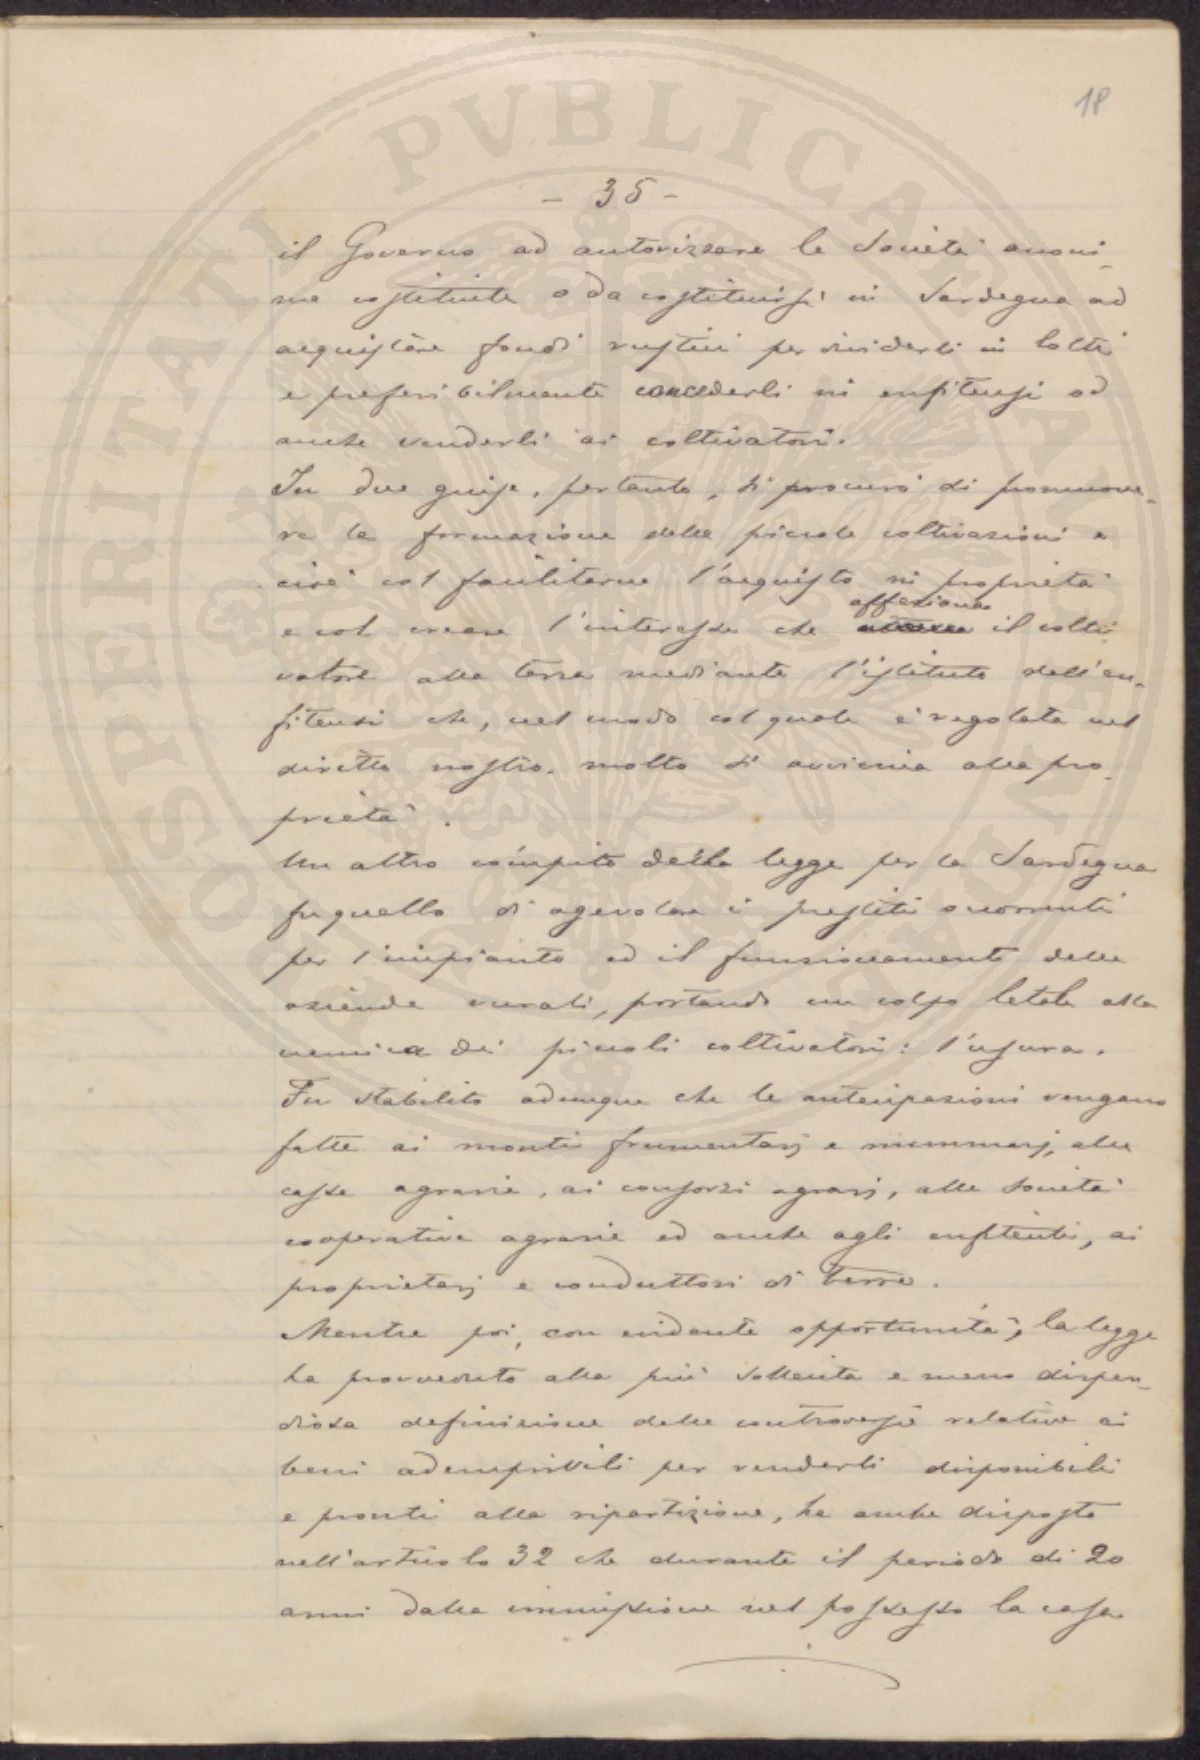 18
- 35 -
il Governo ad autorizzare le Società anoni-
me costituite o da costituirsi in Sardegna ad
acquistare fondi rustici per dividerli in lotti
e preferibilmente concederli in enfiteusi od
anche venderli ai coltivatori.
In due guise, pertanto, si procurò di promuove-
re la formazione delle piccole coltivazioni e
cioè col facilitarne l'acquisto in proprietà
affeziona
e col creare l'interesse che il colti-
vatore alla terra mediante l'istituto dell'en-
fiteusi che, nel modo col quale è regolata nel
diritto nostro, molto si avvicina alla pro-
prietà.
Un altro compito della legge per la Sardegna
fu quello di agevolare i prestiti occorrenti
per l'impianto ed il funzionamento delle
aziende rurali, portando un colpo letale alla
nemica dei piccoli coltivatori: l'usura.
Fu stabilito adunque che le anticipazioni vengano
fatte ai monti frumentarj e nummarj, alle
casse agrarie, ai consorzi agrarj, alle Società
cooperative agrarie ed anche agli enfiteuti, ai
proprietarj e conduttori di terre.
Mentre poi, con evidente opportunità, la legge
ha provveduto alla più sollecita e meno dispen-
diosa definizione delle controversie relative ai
beni ademprivili per renderli disponibili
e pronti alla ripartizione, ha anche disposto
nell'articolo 32 che durante il periodo di 20
anni dalla immissione nel possesso la casa
PROSPERITATI PVBLICAE